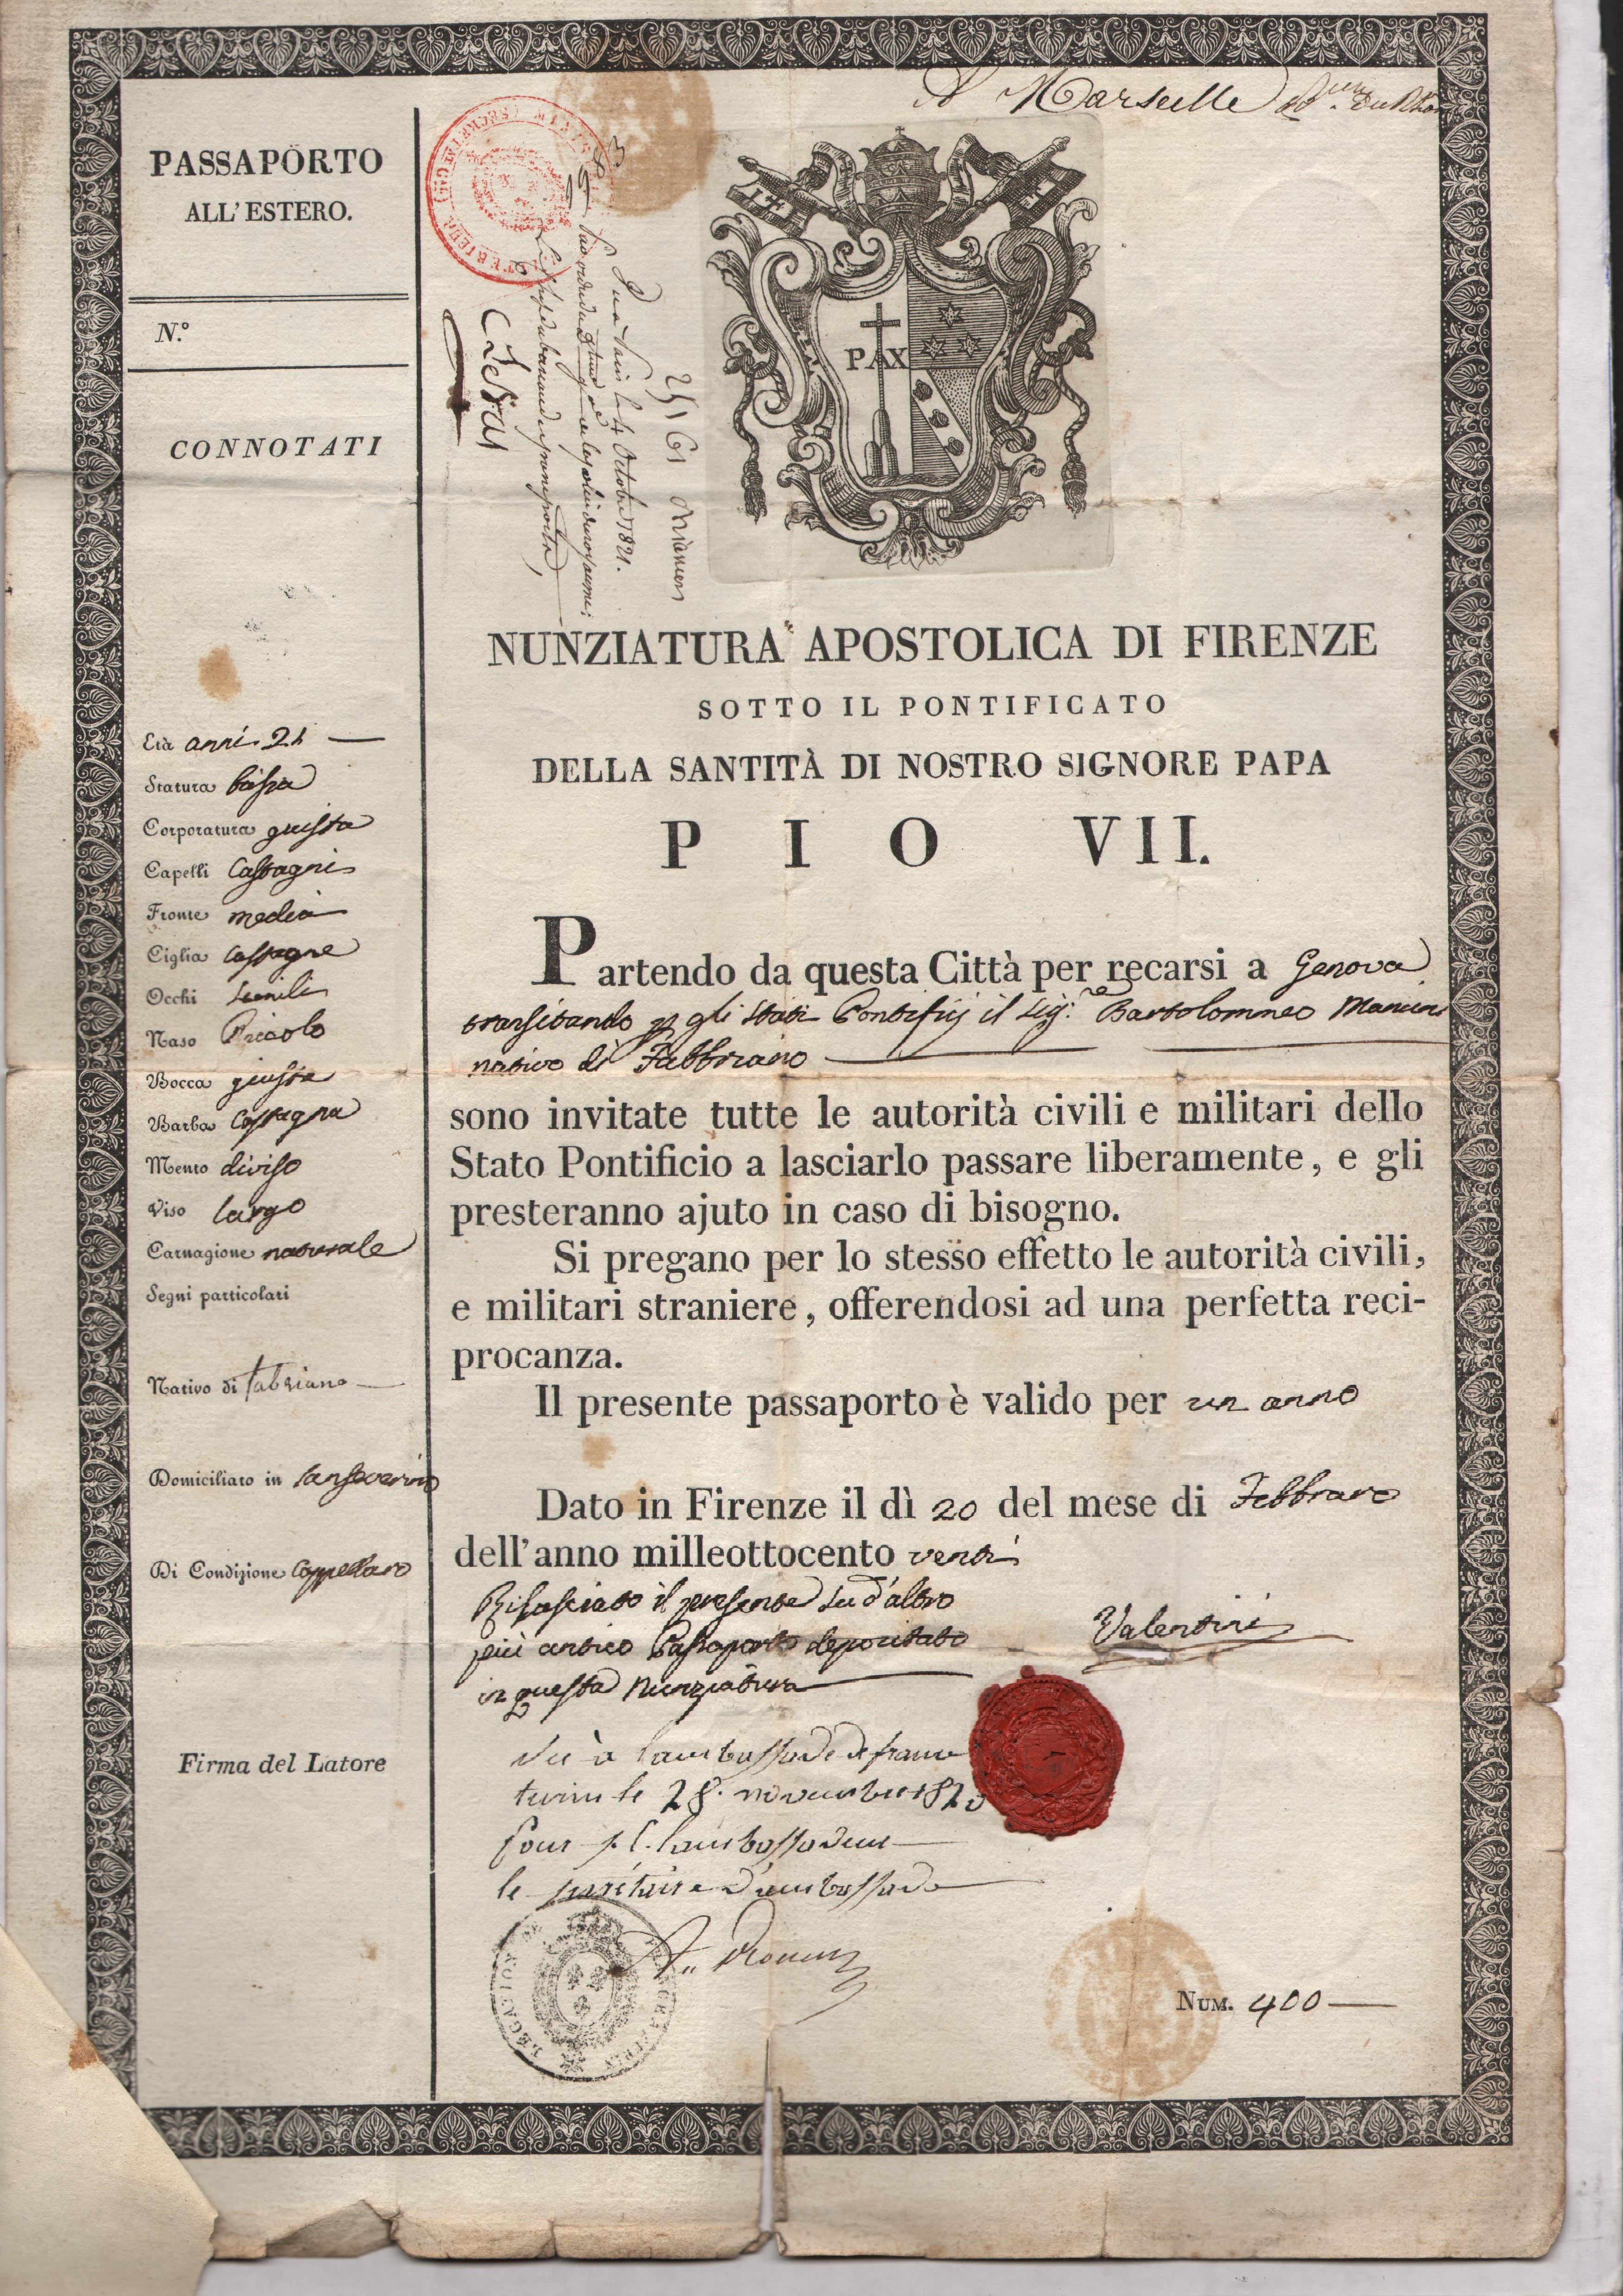 A Marseille
PASSAPORTO
ALL'ESTERO.
N.º
CONNOTATI
Età anni 21
Statura bassa
Corporatura giusta
Capelli Castagni
Fronte media
Ciglia Castagne
Occhi simili
Naso Piccolo
Bocca giusta
Barba Castagna
Mento diviso
Viso largo
Carnagione naturale
Segni particolari
Nativo di Fabriano
Domiciliato in Sanseverino
Di Condizione Cappellaro
Firma del Latore
PAX
4 Octobre 1821.
NUNZIATURA APOSTOLICA DI FIRENZE
SOTTO IL PONTIFICATO
DELLA SANTITÀ DI NOSTRO SIGNORE PAPA
PIO VII.
Partendo da questa Città per recarsi a Genova
transitando p gli Stati Pontificj il Sig.re Bartolommeo Mancini
nativo di Fabbriano
sono invitate tutte le autorità civili e militari dello
Stato Pontificio a lasciarlo passare liberamente, e gli
presteranno ajuto in caso di bisogno.
Si pregano per lo stesso effetto le autorità civili,
e militari straniere, offerendosi ad una perfetta reci-
procanza.
Il presente passaporto è valido per un anno
Dato in Firenze il dì 20 del mese di Febbraro
dell'anno milleottocento venti
Rilasciato il presente su d'altro
più antico Passaporto depositato
in questa Nunziatura
Valentini
Vu à l'ambassade de france
turin le 28. novembre 182
pour s. e. l'ambassadeur
le secrétaire d'ambassade
LEGATION DE
NUM. 400